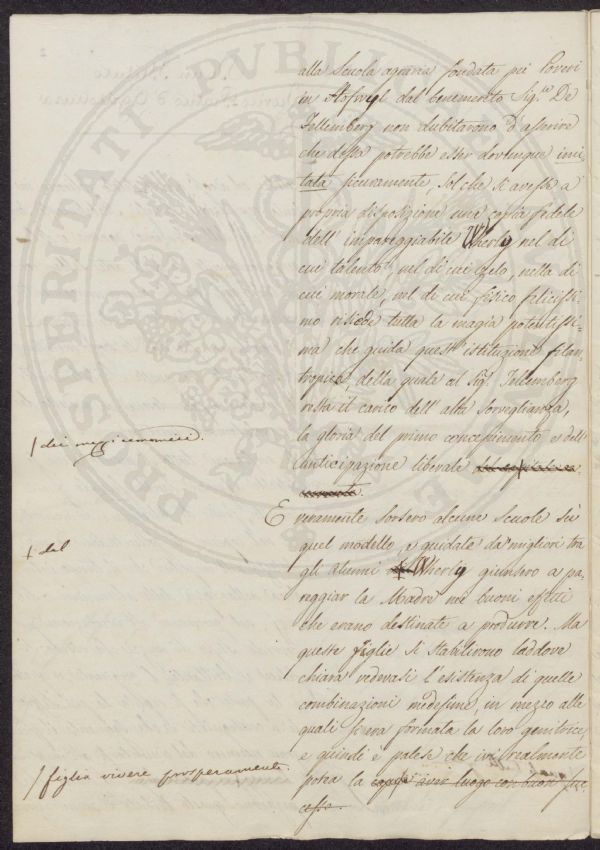 alla Scuola agraria fondata pei Poveri
in Hofwyl dal benemerito Sig.re De
Fellemberg non dubitarono d'asserire
che dessa potrebbe esser dovunque imi
tata sicuramente, sol che si avesse a
propria disposizione una copia fedele
dell' impareggiabile Wherly, nel di
cui talento, nel di cui zelo, nella di
cui morale, nel di cui fisico felicissi
mo risiede tutta la magia potentissi=
ma che guida quest' istituzione filan,
tropica, della quale al Sig. Fellemberg
resta il carico dell' alta sorveglianza,
la gloria del primo concepimento e dell'
anticipazione liberale del capitale ne
cessario.
/ dei mezzi economici.
E veramente sorsero alcune Scuole su
quel modello, e guidate da' migliori tra
+ dal
gli alunni Wherly giunsero a pa,
reggiar la Madre nei buoni effetti
che erano destinate a produrre. Ma
queste figlie si stabilirono laddove
chiara vedevasi l'esistenza di quelle
combinazioni medesime, in mezzo alle
quali s'era formata la loro genitrice,
e quindi è palese che ivi realmente
/ figlia vivere prosperamente.
potea la copia aver luogo con buon suc
cesso.